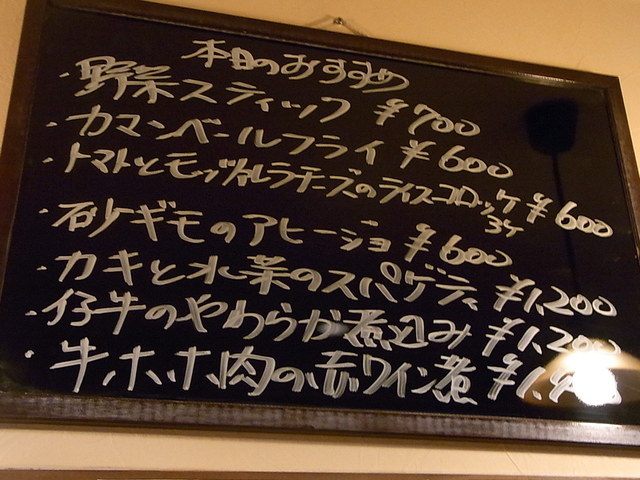 本日のおすすめ
・野菜スティック ¥700
・カマンベールフライ ¥600
・トマトとモッツァレラチーズのライスコロッケ 3ケ ¥600
・砂ギモのアヒージョ ¥600
・カキと水菜のスパゲティ ¥1,200
・仔牛のやわらか煮込み ¥1,200
・牛ホホ肉の赤ワイン煮